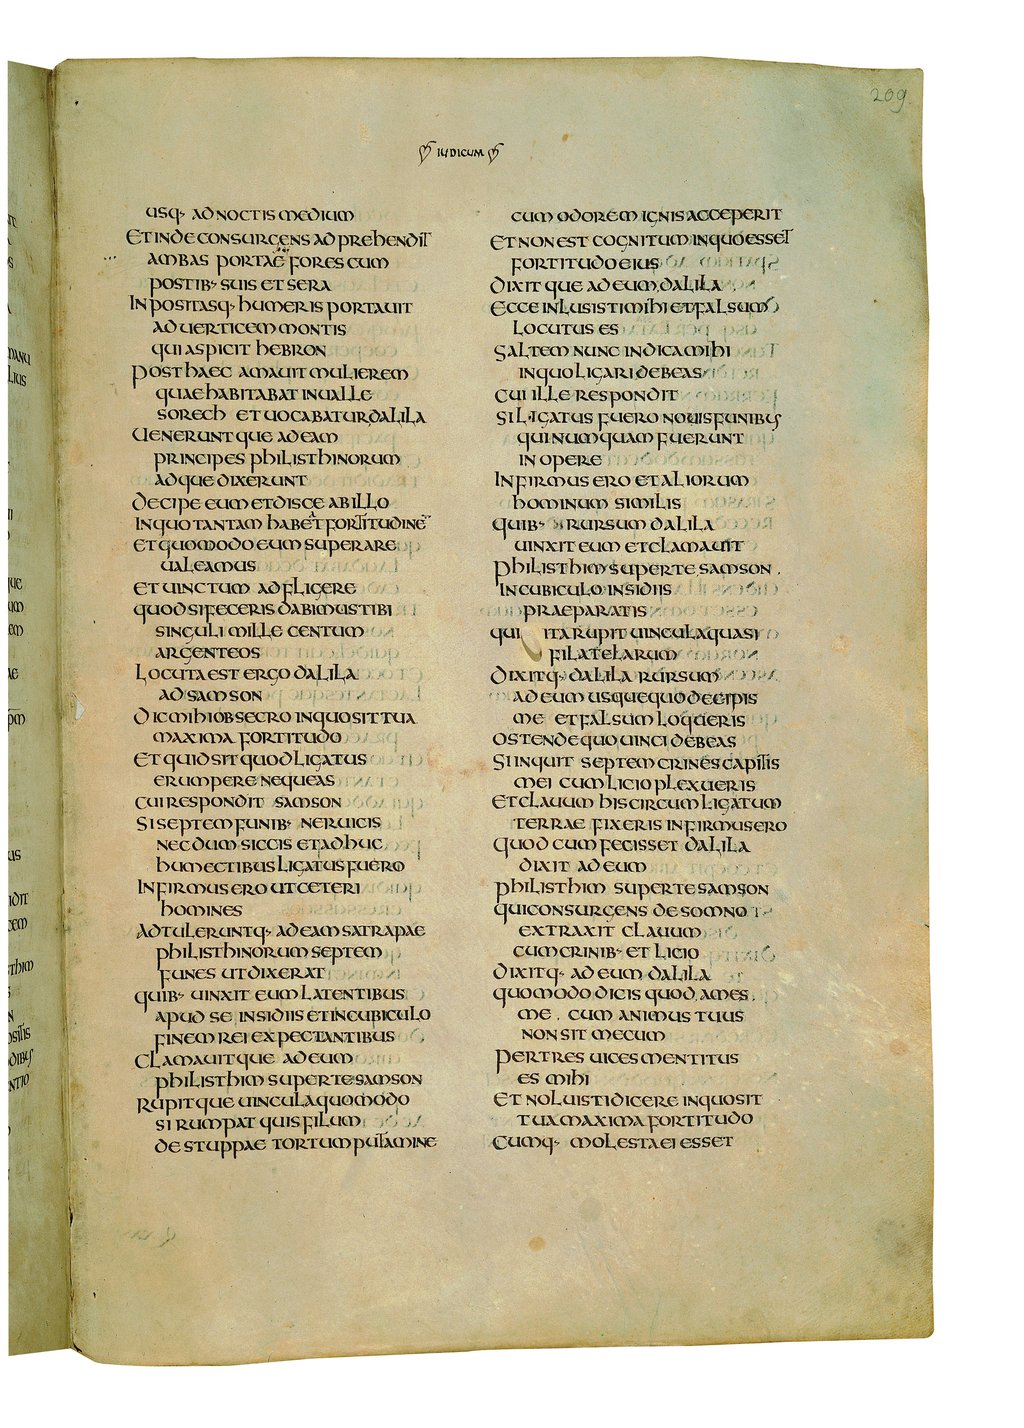 209
IUDICUM
USQ· AD NOCTIS MEDIUM
ET INDE CONSURGENS ADPREHENDIT
AMBAS PORTAE FORES CUM
POSTIB· SUIS ET SERA
INPOSITASQ· HUMERIS PORTAUIT
AD UERTICEM MONTIS
QUI ASPICIT HEBRON
POST HAEC AMAUIT MULIEREM
QUAE HABITABAT IN UALLE
SORECH ET UOCABATUR DALILA
UENERUNTQUE AD EAM
PRINCIPES PHILISTHINORUM
ADQUE DIXERUNT
DECIPE EUM ET DISCE AB ILLO
IN QUO TANTAM HABET FORTITUDINE
ET QUOMODO EUM SUPERARE
UALEAMUS
ET UINCTUM ADFLIGERE
QUOD SI FECERIS DABIMUS TIBI
SINGULI MILLE CENTUM
ARGENTEOS
LOCUTA EST ERGO DALILA
AD SAMSON
DIC MIHI OBSECRO IN QUO SIT TUA
MAXIMA FORTITUDO
ET QUID SIT QUOD LIGATUS
ERUMPERE NEQUEAS
CUI RESPONDIT SAMSON
SI SEPTEM FUNIB· NERUICIS
NECDUM SICCIS ET ADHUC
HUMECTIBUS LIGATUS FUERO
INFIRMUS ERO UT CETERI
HOMINES
ADTULERUNTQ· AD EAM SATRAPAE
PHILISTHINORUM SEPTEM
FUNES UT DIXERAT
QUIB· UINXIT EUM LATENTIBUS
APUD SE INSIDIIS ET IN CUBICULO
FINEM REI EXPECTANTIBUS
CLAMAUITQUE AD EUM
PHILISTHIM SUPER TE SAMSON
RUPITQUE UINCULA QUOMODO
SI RUMPAT QUIS FILUM
DE STUPPAE TORTUM PUTAMINE
CUM ODOREM IGNIS ACCEPERIT
ET NON EST COGNITUM IN QUO ESSET
FORTITUDO EIUS
DIXITQUE AD EUM DALILA
ECCE INLUSISTI MIHI ET FALSUM
LOCUTUS ES
SALTEM NUNC INDICA MIHI
IN QUO LIGARI DEBEAS
CUI ILLE RESPONDIT
SI LIGATUS FUERO NOUIS FUNIBUS
QUI NUMQUAM FUERUNT
IN OPERE
INFIRMUS ERO ET ALIORUM
HOMINUM SIMILIS
QUIB· RURSUM DALILA
UINXIT EUM ET CLAMAUIT
PHILISTHIM SUPER TE SAMSON
IN CUBICULO INSIDIIS
PRAEPARATIS
QUI ITA RUPIT UINCULA QUASI
FILA TELARUM
DIXITQ· DALILA RURSUM
AD EUM USQUEQUO DECIPIS
ME ET FALSUM LOQUERIS
OSTENDE QUO UINCI DEBEAS
SI INQUIT SEPTEM CRINES CAPITIS
MEI CUM LICIO PLEXUERIS
ET CLAUUM HIS CIRCUMLIGATUM
TERRAE FIXERIS INFIRMUS ERO
QUOD CUM FECISSET DALILA
DIXIT AD EUM
PHILISTHIM SUPER TE SAMSON
QUI CONSURGENS DE SOMNO
EXTRAXIT CLAUUM
CUM CRINIB· ET LICIO
DIXITQ· AD EUM DALILA
QUOMODO DICIS QUOD AMES
ME CUM ANIMUS TUUS
NON SIT MECUM
PER TRES UICES MENTITUS
ES MIHI
ET NOLUISTI DICERE IN QUO SIT
TUA MAXIMA FORTITUDO
CUMQ· MOLESTA EI ESSET